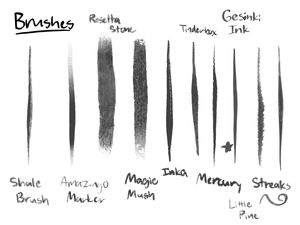 Brushes
Rosetta
Stone
Tinderbox
Gesinki
Ink
Shale
Brush
Amazingo
Marker
Magic
Mush
Inka
Mercury
Streaks
Little
Pine